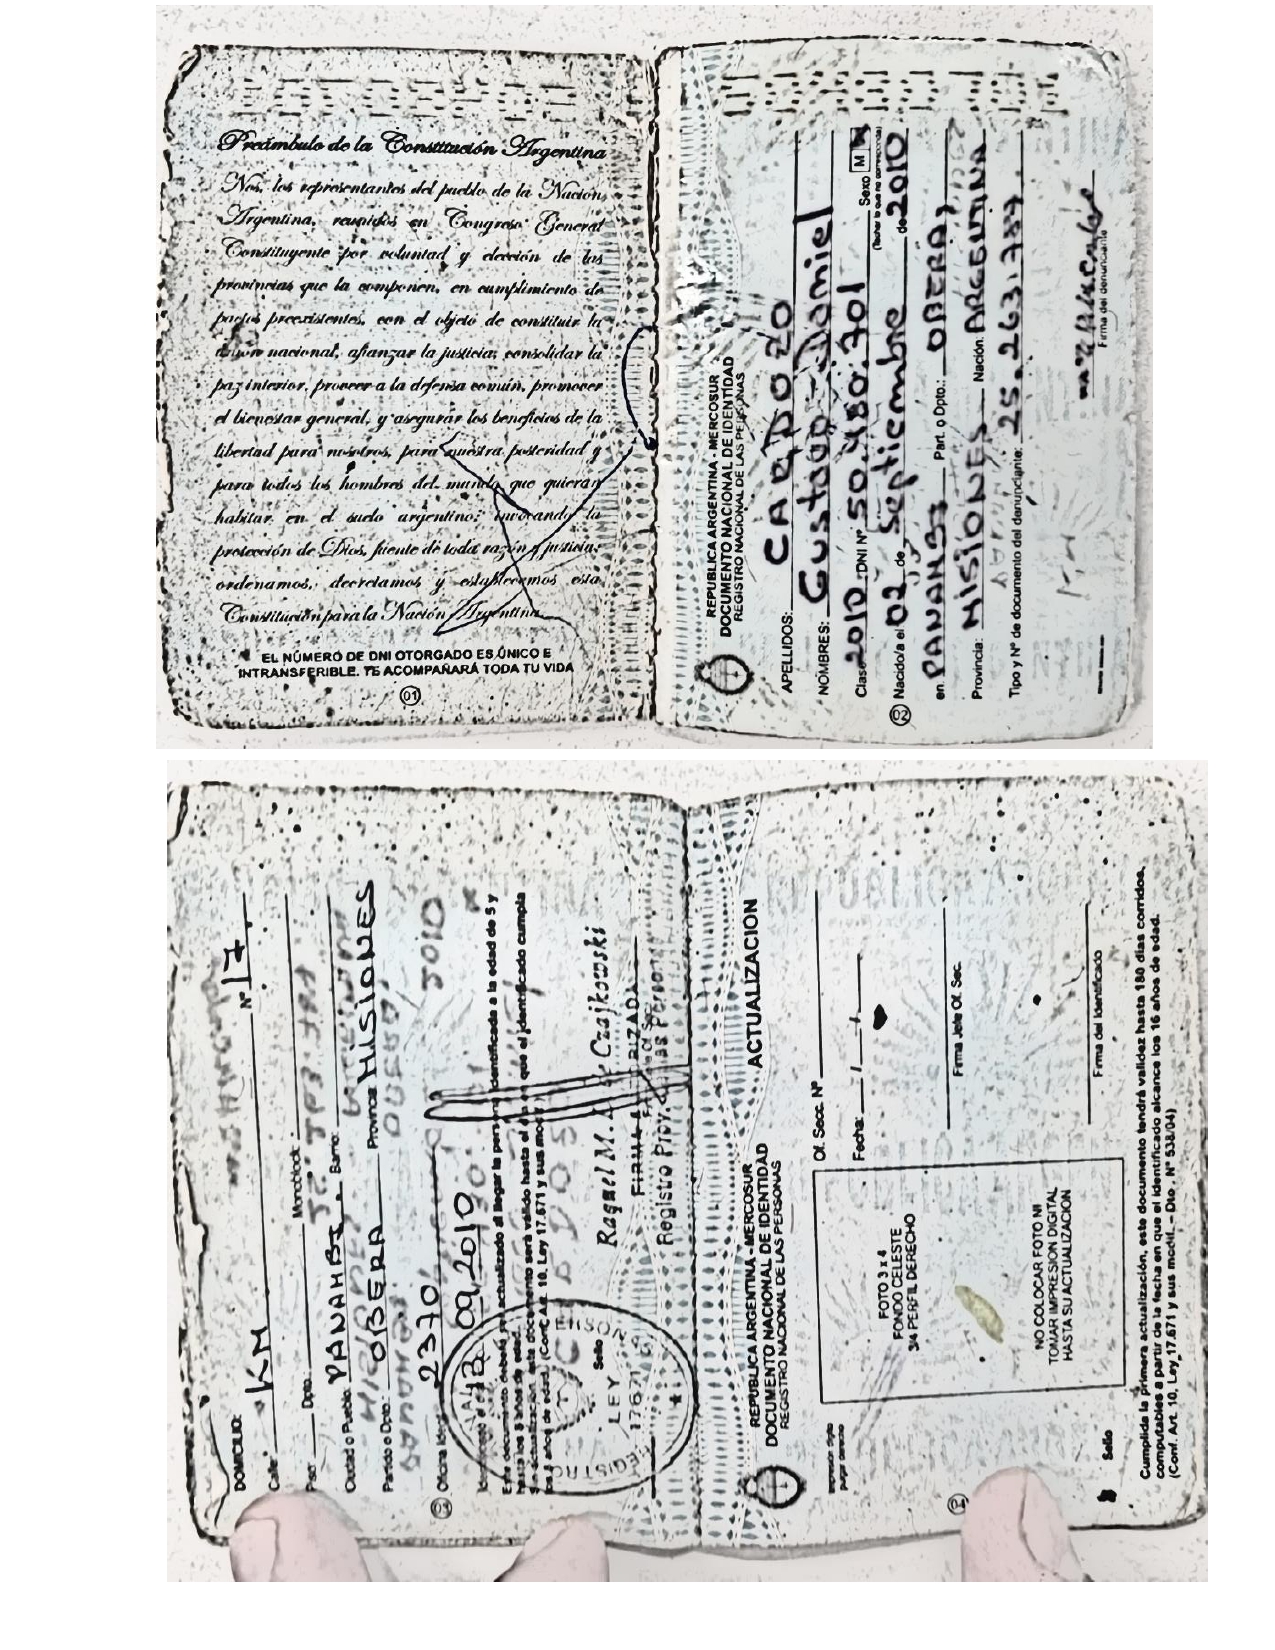 Preámbulo de la Constitución Argentina
Nos, los representantes del pueblo de la Nación
Argentina, reunidos en Congreso General
Constituyente por voluntad y elección de las
provincias que la componen, en cumplimiento de
pactos preexistentes, con el objeto de constituir la
unión nacional, afianzar la justicia, consolidar la
paz interior, proveer a la defensa común, promover
el bienestar general, y asegurar los beneficios de la
libertad para nosotros, para nuestra posteridad y
para todos los hombres del mundo que quieran
habitar en el suelo argentino: invocando la
protección de Dios, fuente de toda razón y justicia:
ordenamos, decretamos y establecemos esta
Constitución para la Nación Argentina
EL NÚMERO DE DNI OTORGADO ES ÚNICO E
INTRANSFERIBLE. TE ACOMPAÑARÁ TODA TU VIDA
01
REPUBLICA ARGENTINA - MERCOSUR
DOCUMENTO NACIONAL DE IDENTIDAD
REGISTRO NACIONAL DE LAS PERSONAS
APELLIDOS: CARDOZO
NOMBRES: Gustavo Daniel
Clase 2010 DNI Nº 50.480.701 Sexo M
(Tachar lo que no corresponda)
Nacido/a el 02 de Septiembre de 2010
en PANAMBI Part. o Dpto.: OBERA
Provincia: MISIONES Nación: ARGENTINA
Tipo y Nº de documento del denunciante: 25.263.787
Firma del denunciante
02
DOMICILIO:
Calle: KM Nº 17
Piso: Dpto. Monoblock:
Ciudad o Pueblo: PANAMBI Barrio:
Partido o Dpto.: OBERA Provincia MISIONES
Oficina Ident. 2370
09 2010
Este documento deberá ser actualizado al llegar la persona identificada a la edad de 5 y
hasta los 8 años de edad.
Sin actualización, este documento será válido hasta el día en que el identificado cumpla
los 8 años de edad. (Conf. Art. 10, Ley 17.671 y sus modif.)
Sello
LEY
17671
Raquel M. Czajkowski
FIRMA AUTORIZADA
Registro Prov. de las Personas
03
REPUBLICA ARGENTINA - MERCOSUR
DOCUMENTO NACIONAL DE IDENTIDAD
REGISTRO NACIONAL DE LAS PERSONAS
ACTUALIZACION
Of. Secc. Nº
Fecha: / /
Firma Jefe Of. Sec.
Firma del Identificado
Impresión dígito
pulgar derecho
FOTO 3 x 4
FONDO CELESTE
3/4 PERFIL DERECHO
NO COLOCAR FOTO NI
TOMAR IMPRESION DIGITAL
HASTA SU ACTUALIZACION
04
Sello
Cumplida la primera actualización, este documento tendrá validez hasta 180 días corridos,
computables a partir de la fecha en que el identificado alcance los 16 años de edad.
(Conf. Art. 10, Ley 17.671 y sus modif. – Dto. Nº 538/04)